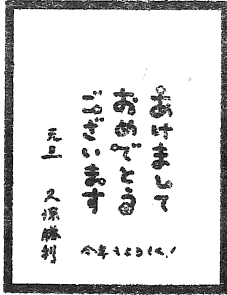 あけまして
おめでとう
ございます
今年もよろしく！
元旦
久保勝利